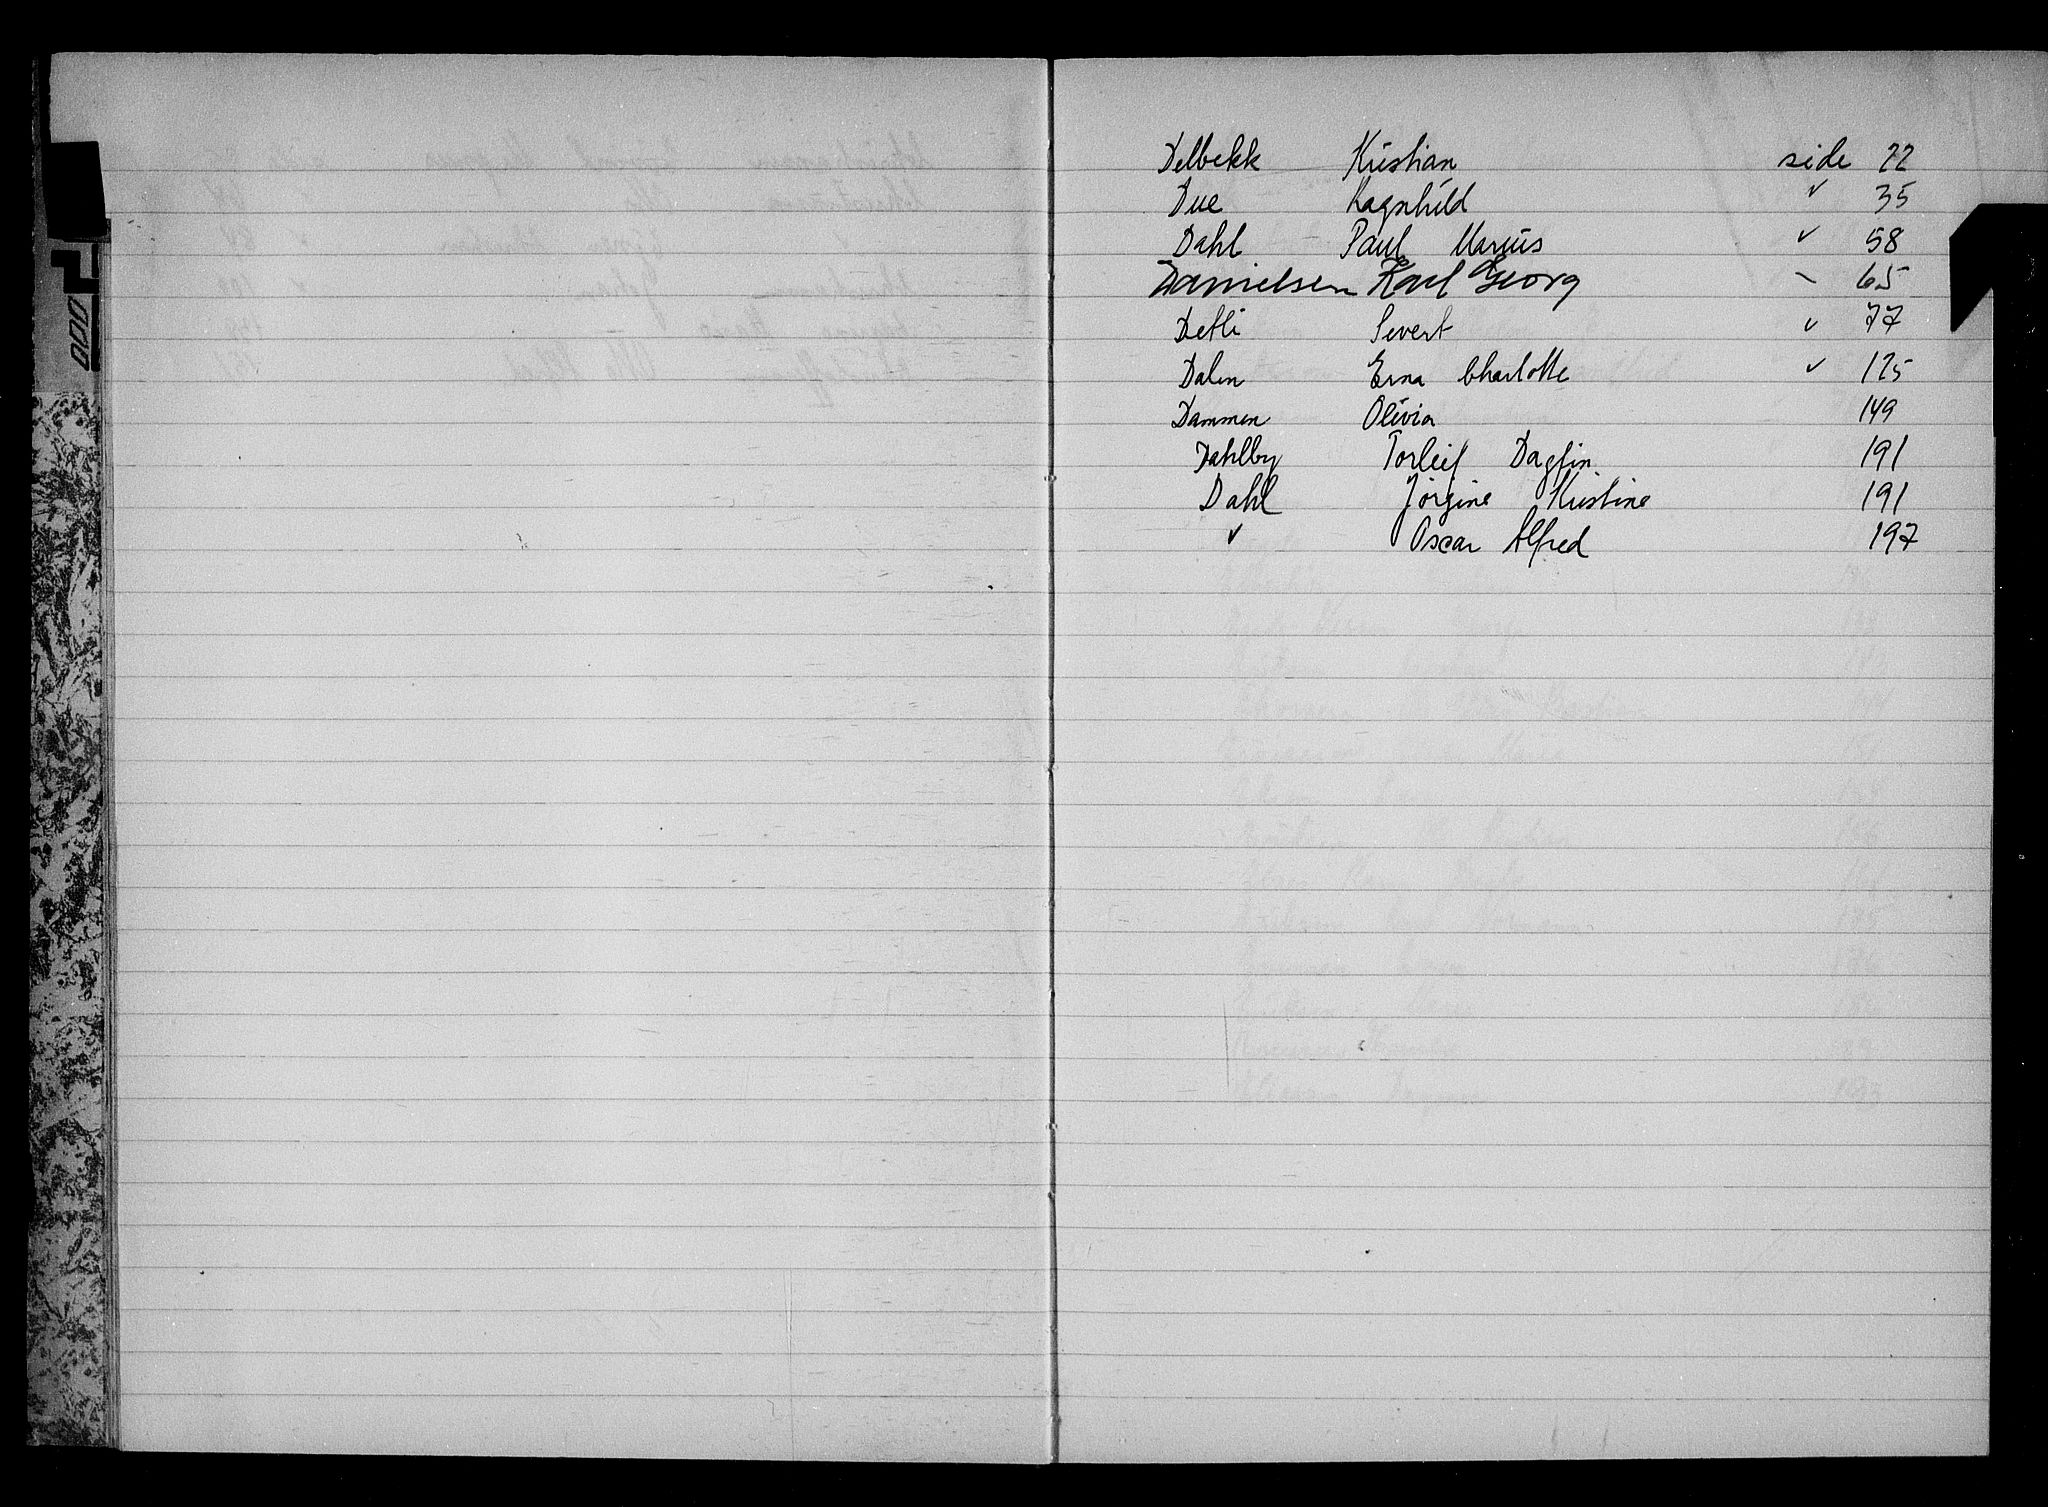 Delbekk Kristian side 22
Due Ragnhild " 35
Dahl Paul Marius " 58
Danielsen Karl Georg - 65
Detli Severt " 77
Dalen Erna Charlotte " 125
Dammen Olivia 149
Dahlby Torleif Dagfin. 191
Dahl Jørgine Kristine 191
" Oscar Alfred 197